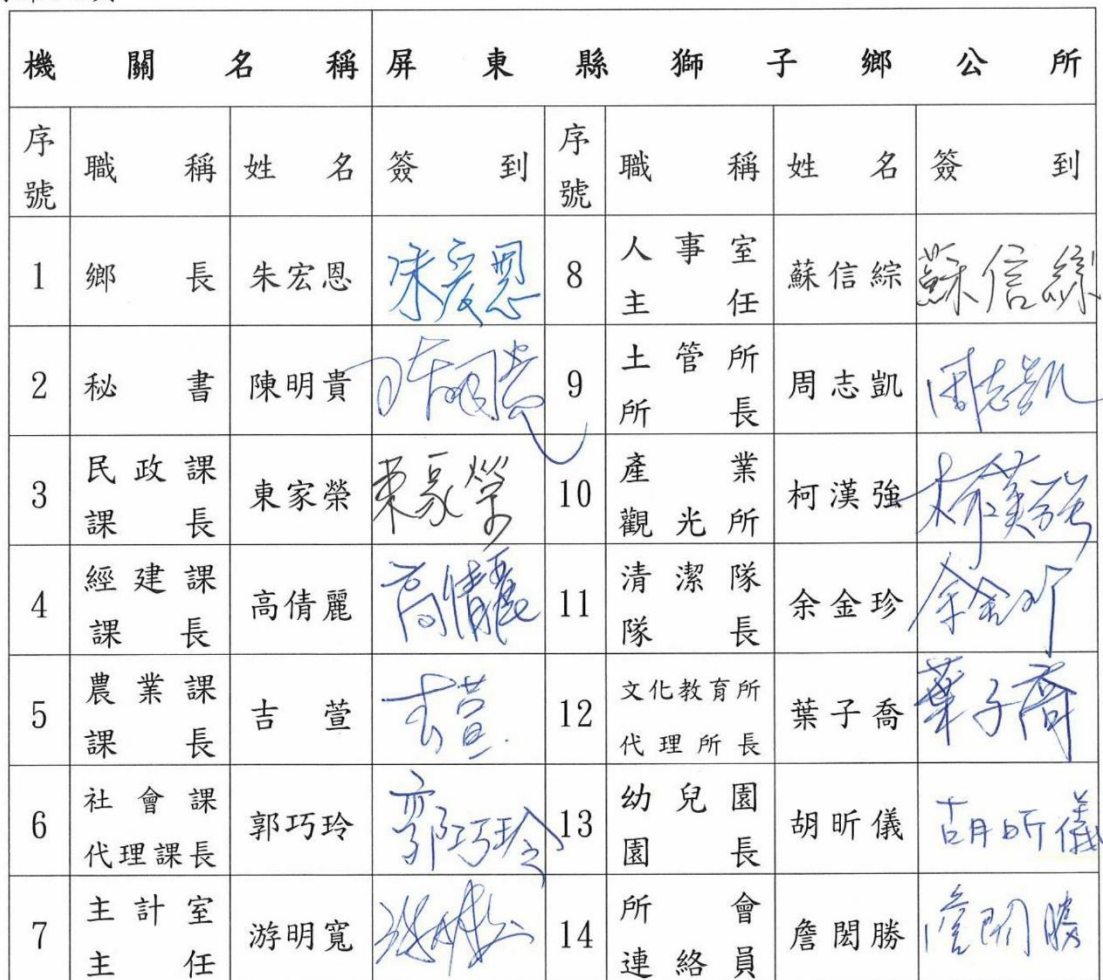 機關名稱 屏東縣獅子鄉公所
序號 職稱 姓名 簽到 序號 職稱 姓名 簽到
1 鄉長 朱宏恩 朱宏恩 8 人事室主任 蘇信綜 蘇信綜
2 秘書 陳明貴 陳明貴 9 土管所所長 周志凱 周志凱
3 民政課課長 東家榮 東家榮 10 產業觀光所 柯漢強 柯漢強
4 經建課課長 高倩麗 高倩麗 11 清潔隊隊長 余金珍 余金珍
5 農業課課長 吉萱 吉萱 12 文化教育所代理所長 葉子喬 葉子喬
6 社會課代理課長 郭巧玲 郭巧玲 13 幼兒園園長 胡昕儀 胡昕儀
7 主計室主任 游明寬 14 所會連絡員 詹閎勝 詹閎勝